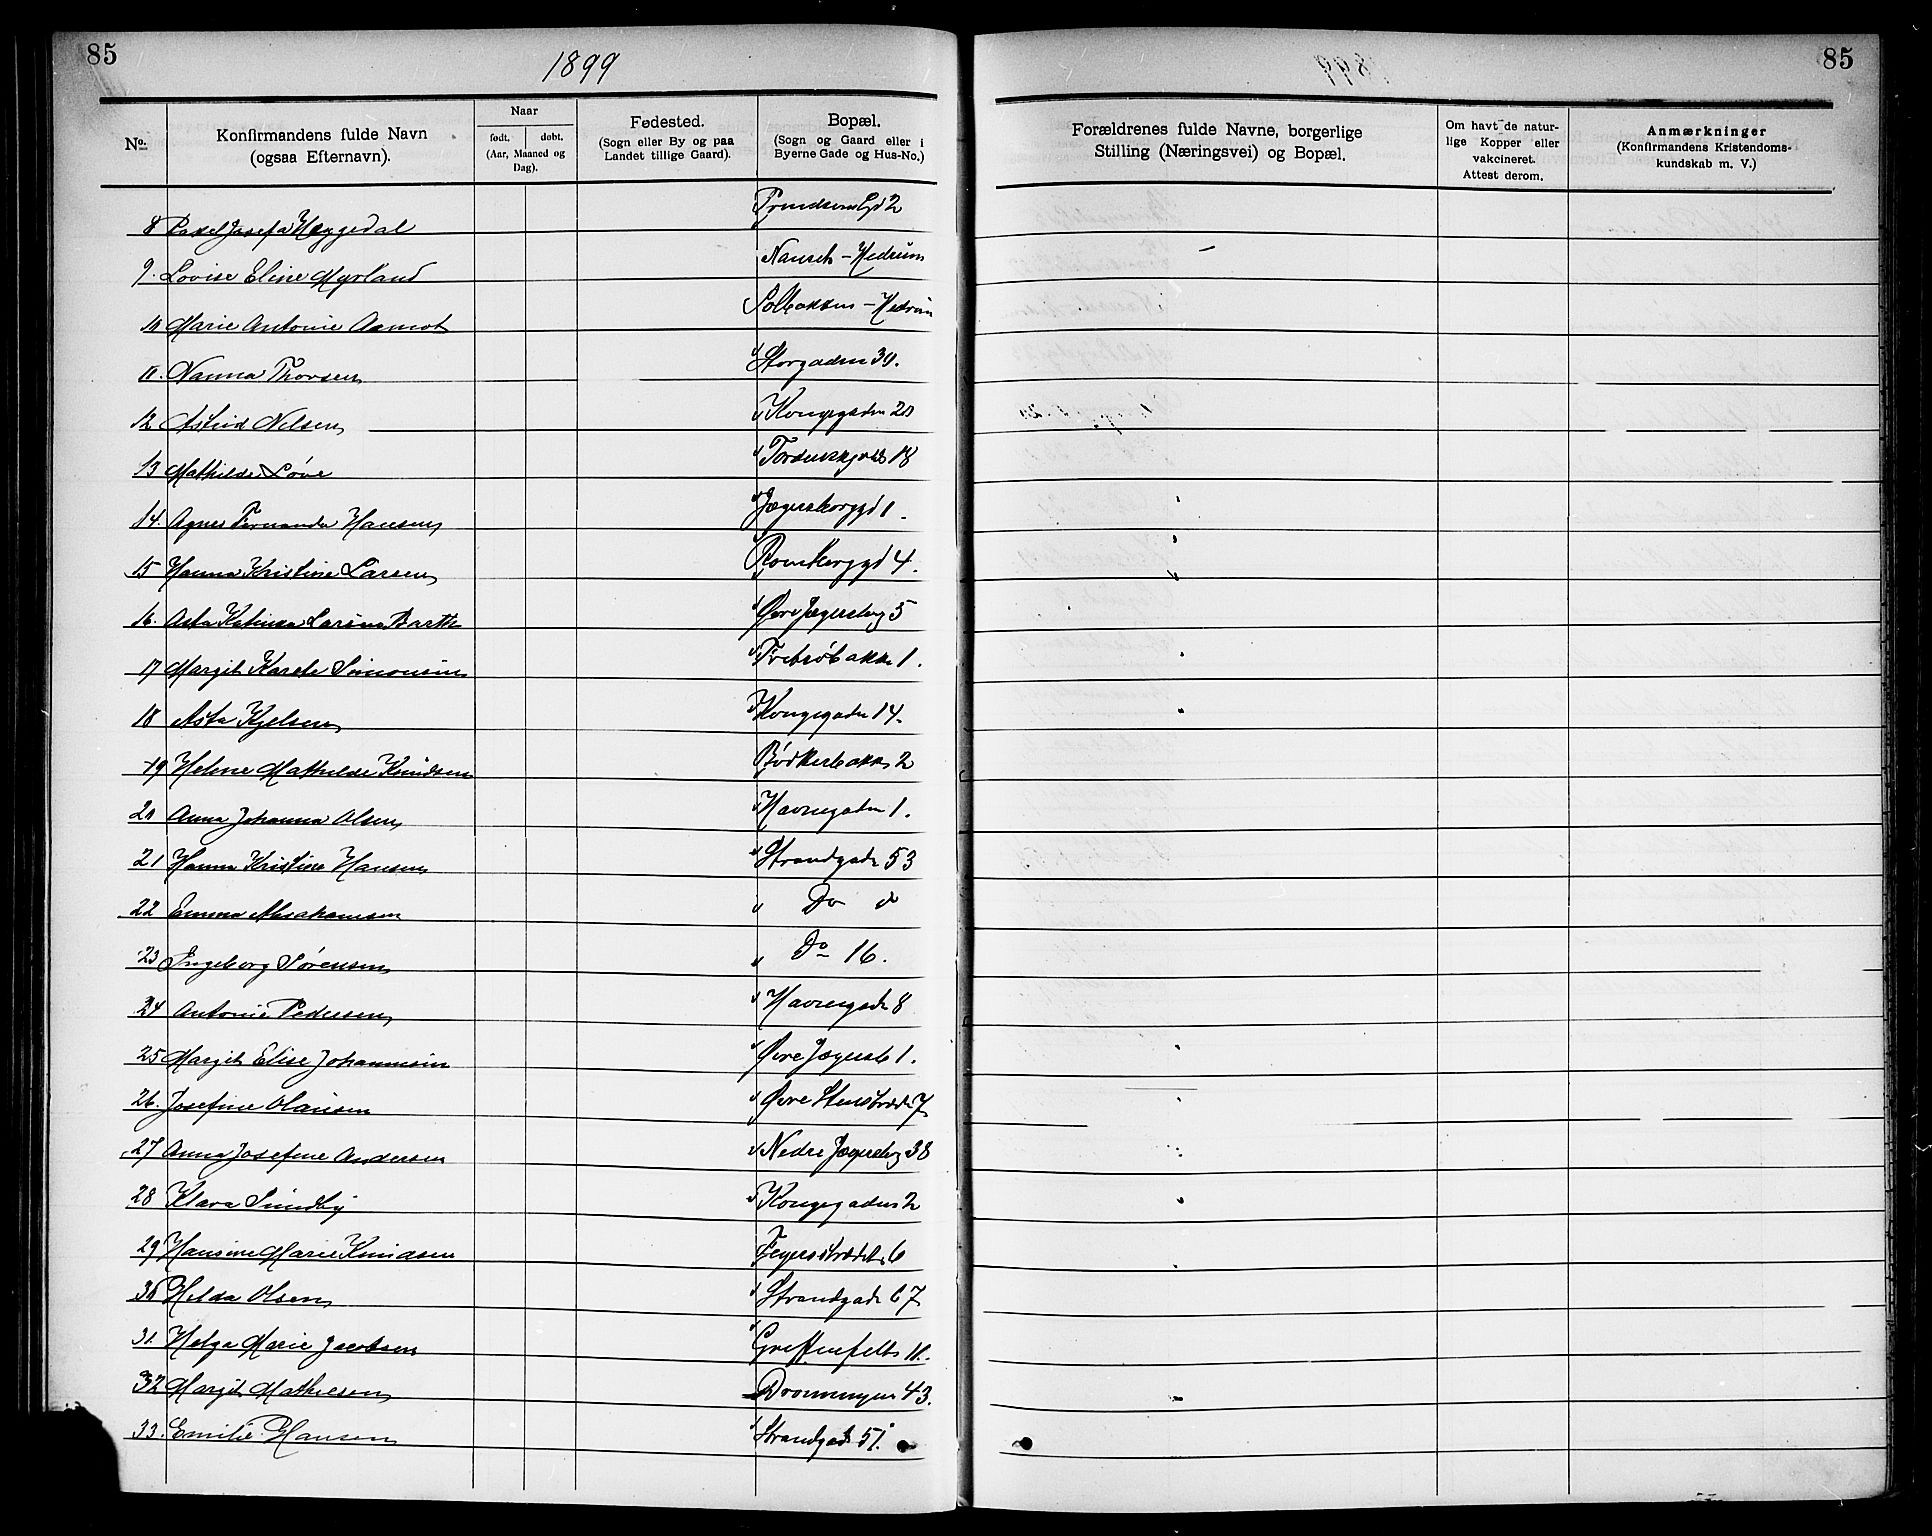 85
1899
85
No.
Konfirmandens fulde Navn
(ogsaa Efternavn).
Naar
født. døbt.
(Aar, Maaned og
Dag).
Fødested.
(Sogn eller By og paa
Landet tillige Gaard).
Bopæl.
(Sogn og Gaard eller i
Byerne Gade og Hus-No.)
Forældrenes fulde Navne, borgerlige
Stilling (Næringsvei) og Bopæl.
Om havt de natur-
lige Kopper eller
vakcineret.
Attest derom.
Anmærkninger
(Konfirmandens Kristendoms-
kundskab m. V.)
8 Josefa Heggedal 2
9. Lovise Eline Myrland Nanset - Hedrum
10 Marie Antonie Aamot Solbakken - Hedrum
11. Nanna Thorsen Storgaden 30.
12 Astrid Nilsen Kongegaden 20
13 Mathilde Løve Tordenskjolds 18
14. Agnes Fernanda Hansen Jegersborggd 1.
15 Hanna Kristine Larsen 4.
16. Asta Katinka Larsine Barth Øvre Jegersbog 5
17 Margit Karete Simonsen Trebrobakke 1.
18 Asta Kjelsen Kongegaden 14.
19 Helene Mathilde Knudsen Bødkerbakke 2
20 Anna Johanna Olsen Havnegaden 1.
21 Hanna Kristine Hansen Strandgade 53
22 Emma Abrahamsen Do do
23 Ingeborg Sørensen Do 16.
24 Antonie Pedersen Havnegade 8
25 Margit Elise Johannesen Øvre Jegersb 1.
26. Josefine Olausen Øvre Stenstræde 7
27 Anna Josefine Andersen Nedre Jegersbog 38
28 Klara Sundby Kongegaden 2
29 Hansine Marie Knudsen Feyersstrædet 6
30 Hilda Olsen Strandgade 67
31. Helga Marie Jacobsen Griffenfelts 11.
32 Margit Mathiesen Dronningen 43.
33. Emilie Hansen Strandgade 51.